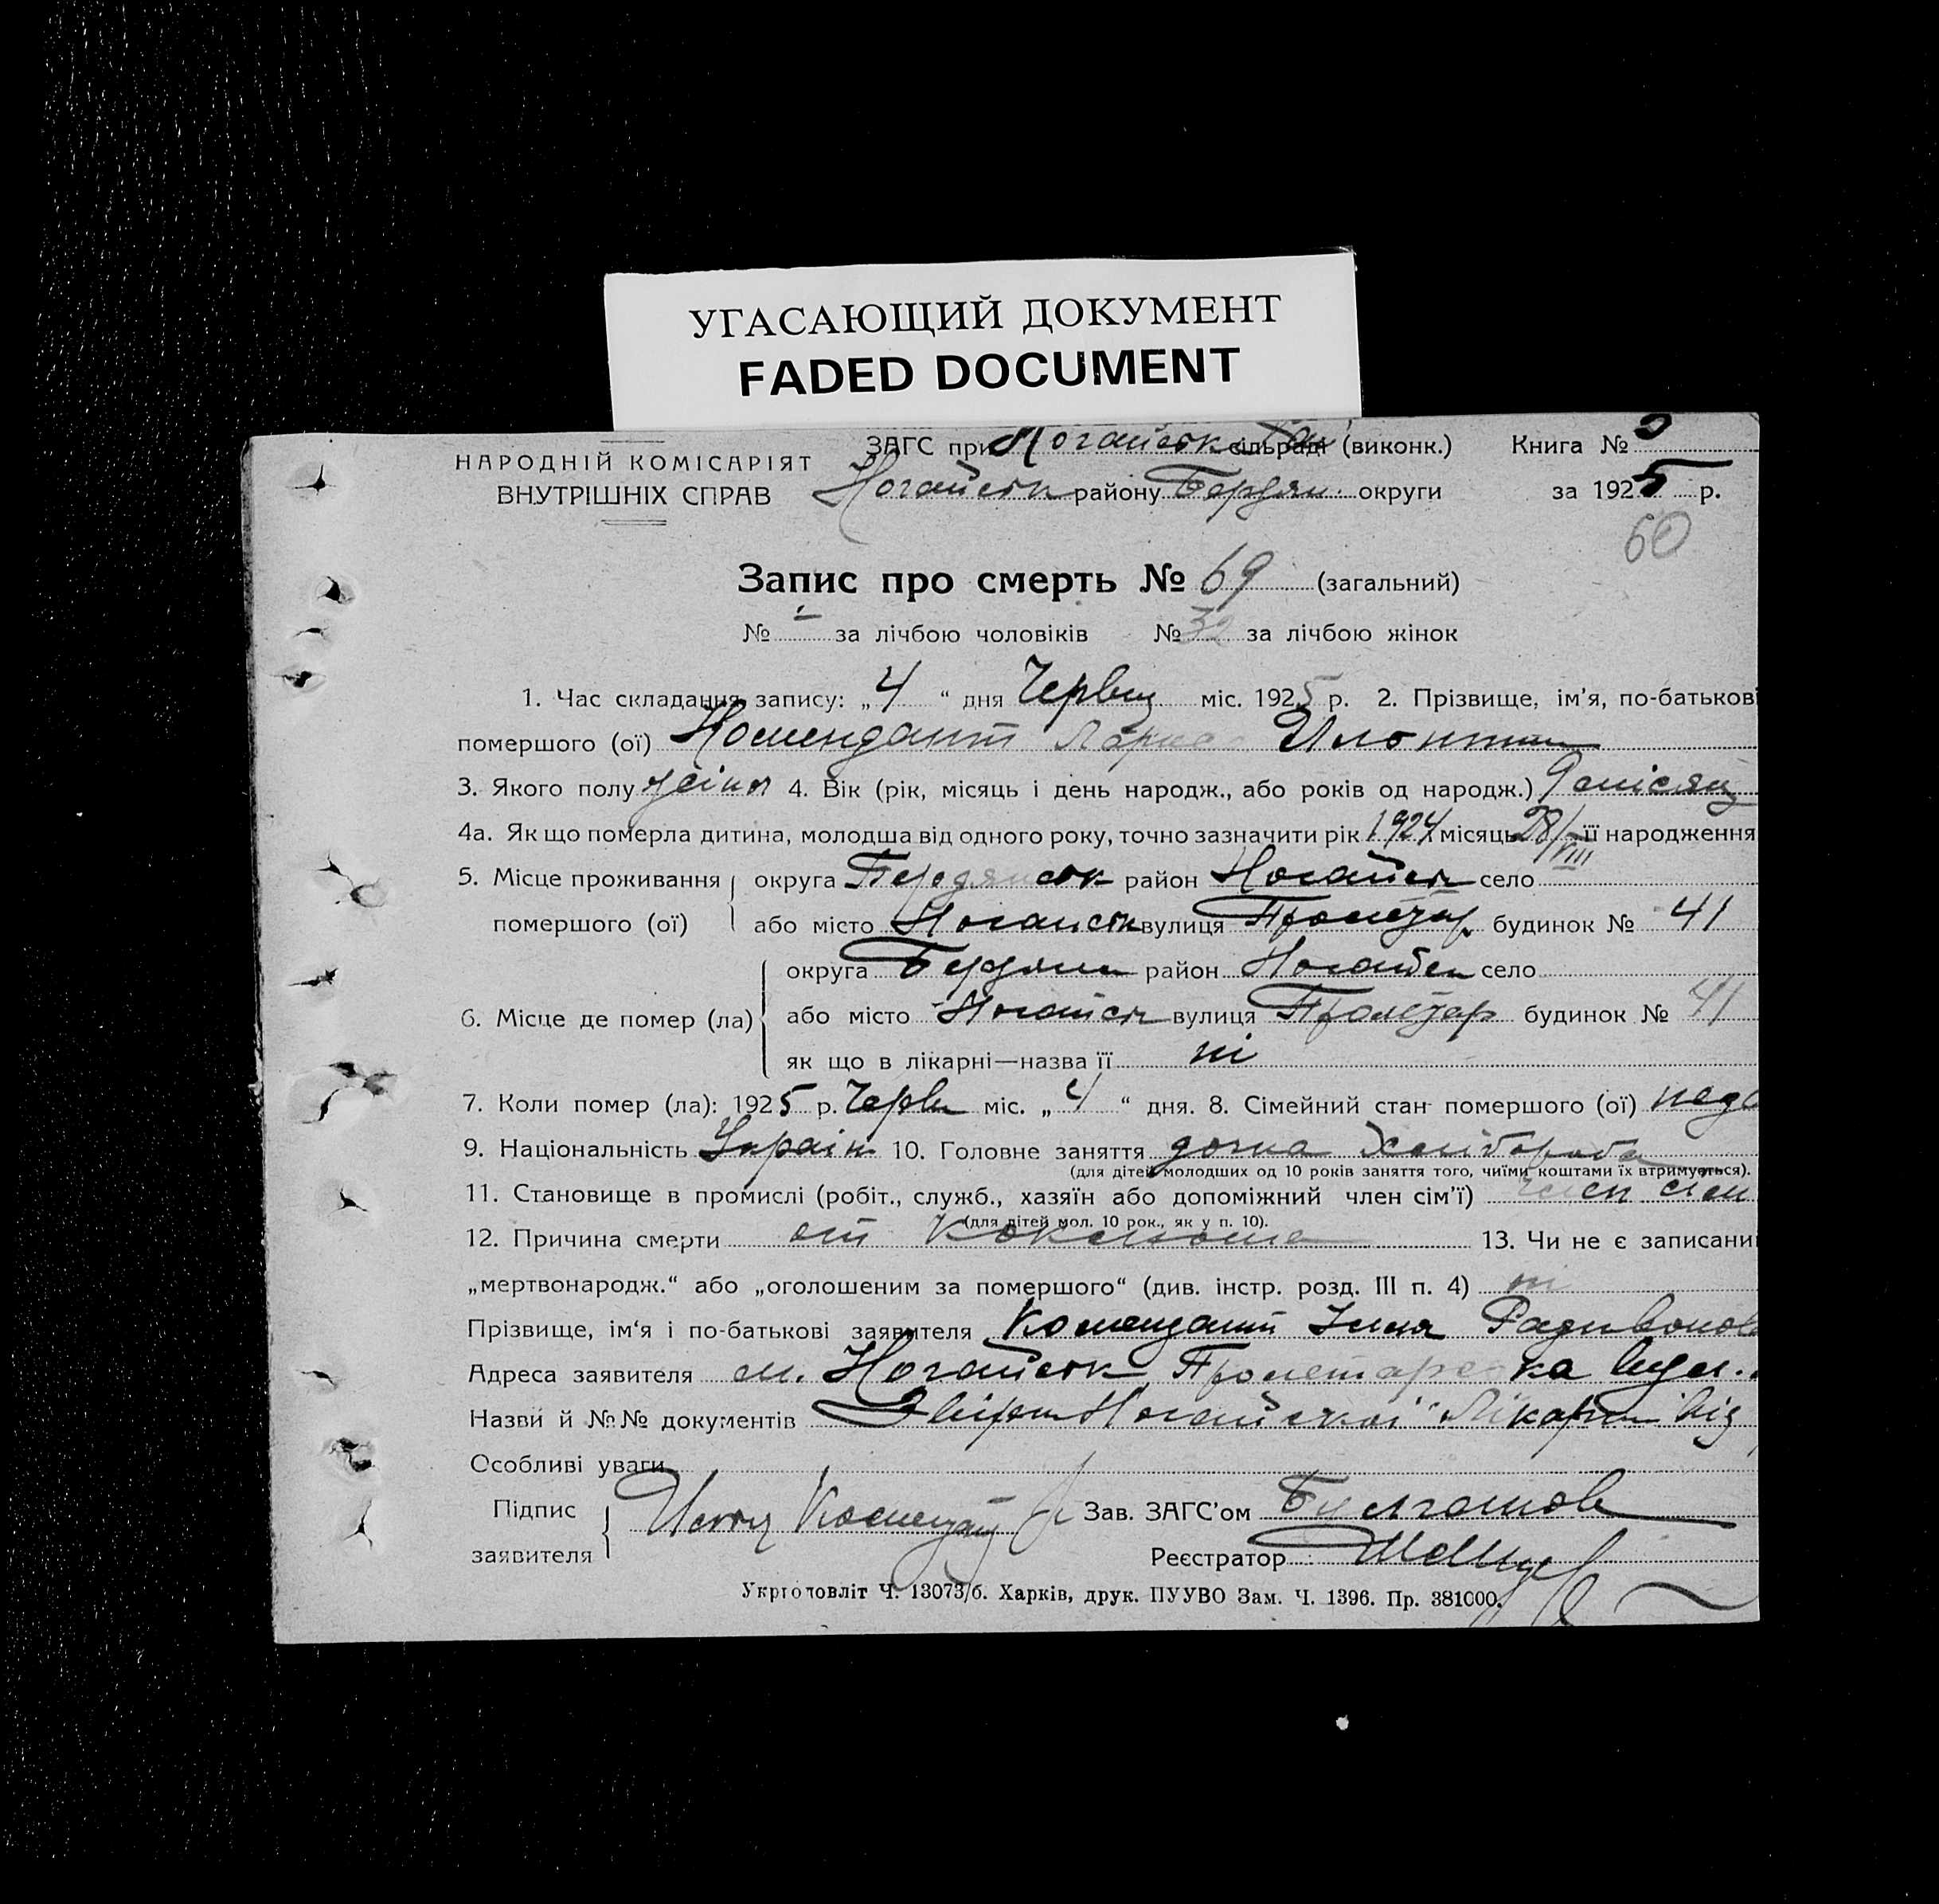 УГАСАЮЩИЙ ДОКУМЕНТ
FADED DOCUMENT
НАРОДНІЙ КОМІСАРІЯТ
ВНУТРІШНІХ СПРАВ
ЗАГС при Ногайськ сільраді (виконк.) Книга №
Ногайськ району Бердян. округи за 1925 р.
60
Запис про смерть № 69 (загальний)
№ - за лічбою чоловіків № 32 за лічбою жінок
1. Час складання запису: „4“ дня Червц міс. 1925 р. 2. Прізвище, ім'я, по-батькові
помершого (ої) Комендант
3. Якого полу жіноч 4. Вік (рік, місяць і день народж., або років од народж.) 9 місяц
4а. Як що померла дитина, молодша від одного року, точно зазначити рік 1924 місяць 28/VIII її народження
5. Місце проживання округа Бердянськ район Ногайськ село
помершого (ої) або місто Ногайськ вулиця Пролетар будинок № 41
округа Бердянськ район Ногайськ село
6. Місце де помер (ла) або місто Ногайськ вулиця Пролетар будинок № 41
як що в лікарні—назва її ні
7. Коли помер (ла): 1925 р. Червн міс. „4“ дня. 8. Сімейний стан помершого (ої)
9. Національність Україн 10. Головне заняття дочка Хлібороба
(для дітей молодших од 10 років заняття того, чиїми коштами їх втримується).
11. Становище в промислі (робіт., служб., хазяїн або допоміжний член сім'ї) член сім
(для дітей мол. 10 рок., як у п. 10).
12. Причина смерти от Коклюша 13. Чи не є записани
„мертвонародж.“ або „оголошеним за помершого“ (див. інстр. розд. III п. 4) ні
Прізвище, ім'я і по-батькові заявителя Комендант Радивонов
Адреса заявителя м. Ногайськ Пролетарська вул.
Назви й №№ документів Ногайської Лікарні від
Особливі уваги
Підпис
заявителя Комендант Зав. ЗАГС'ом
Реєстратор
Укрголовліт Ч. 13073/б. Харків, друк. ПУУВО Зам. Ч. 1396. Пр. 381000.